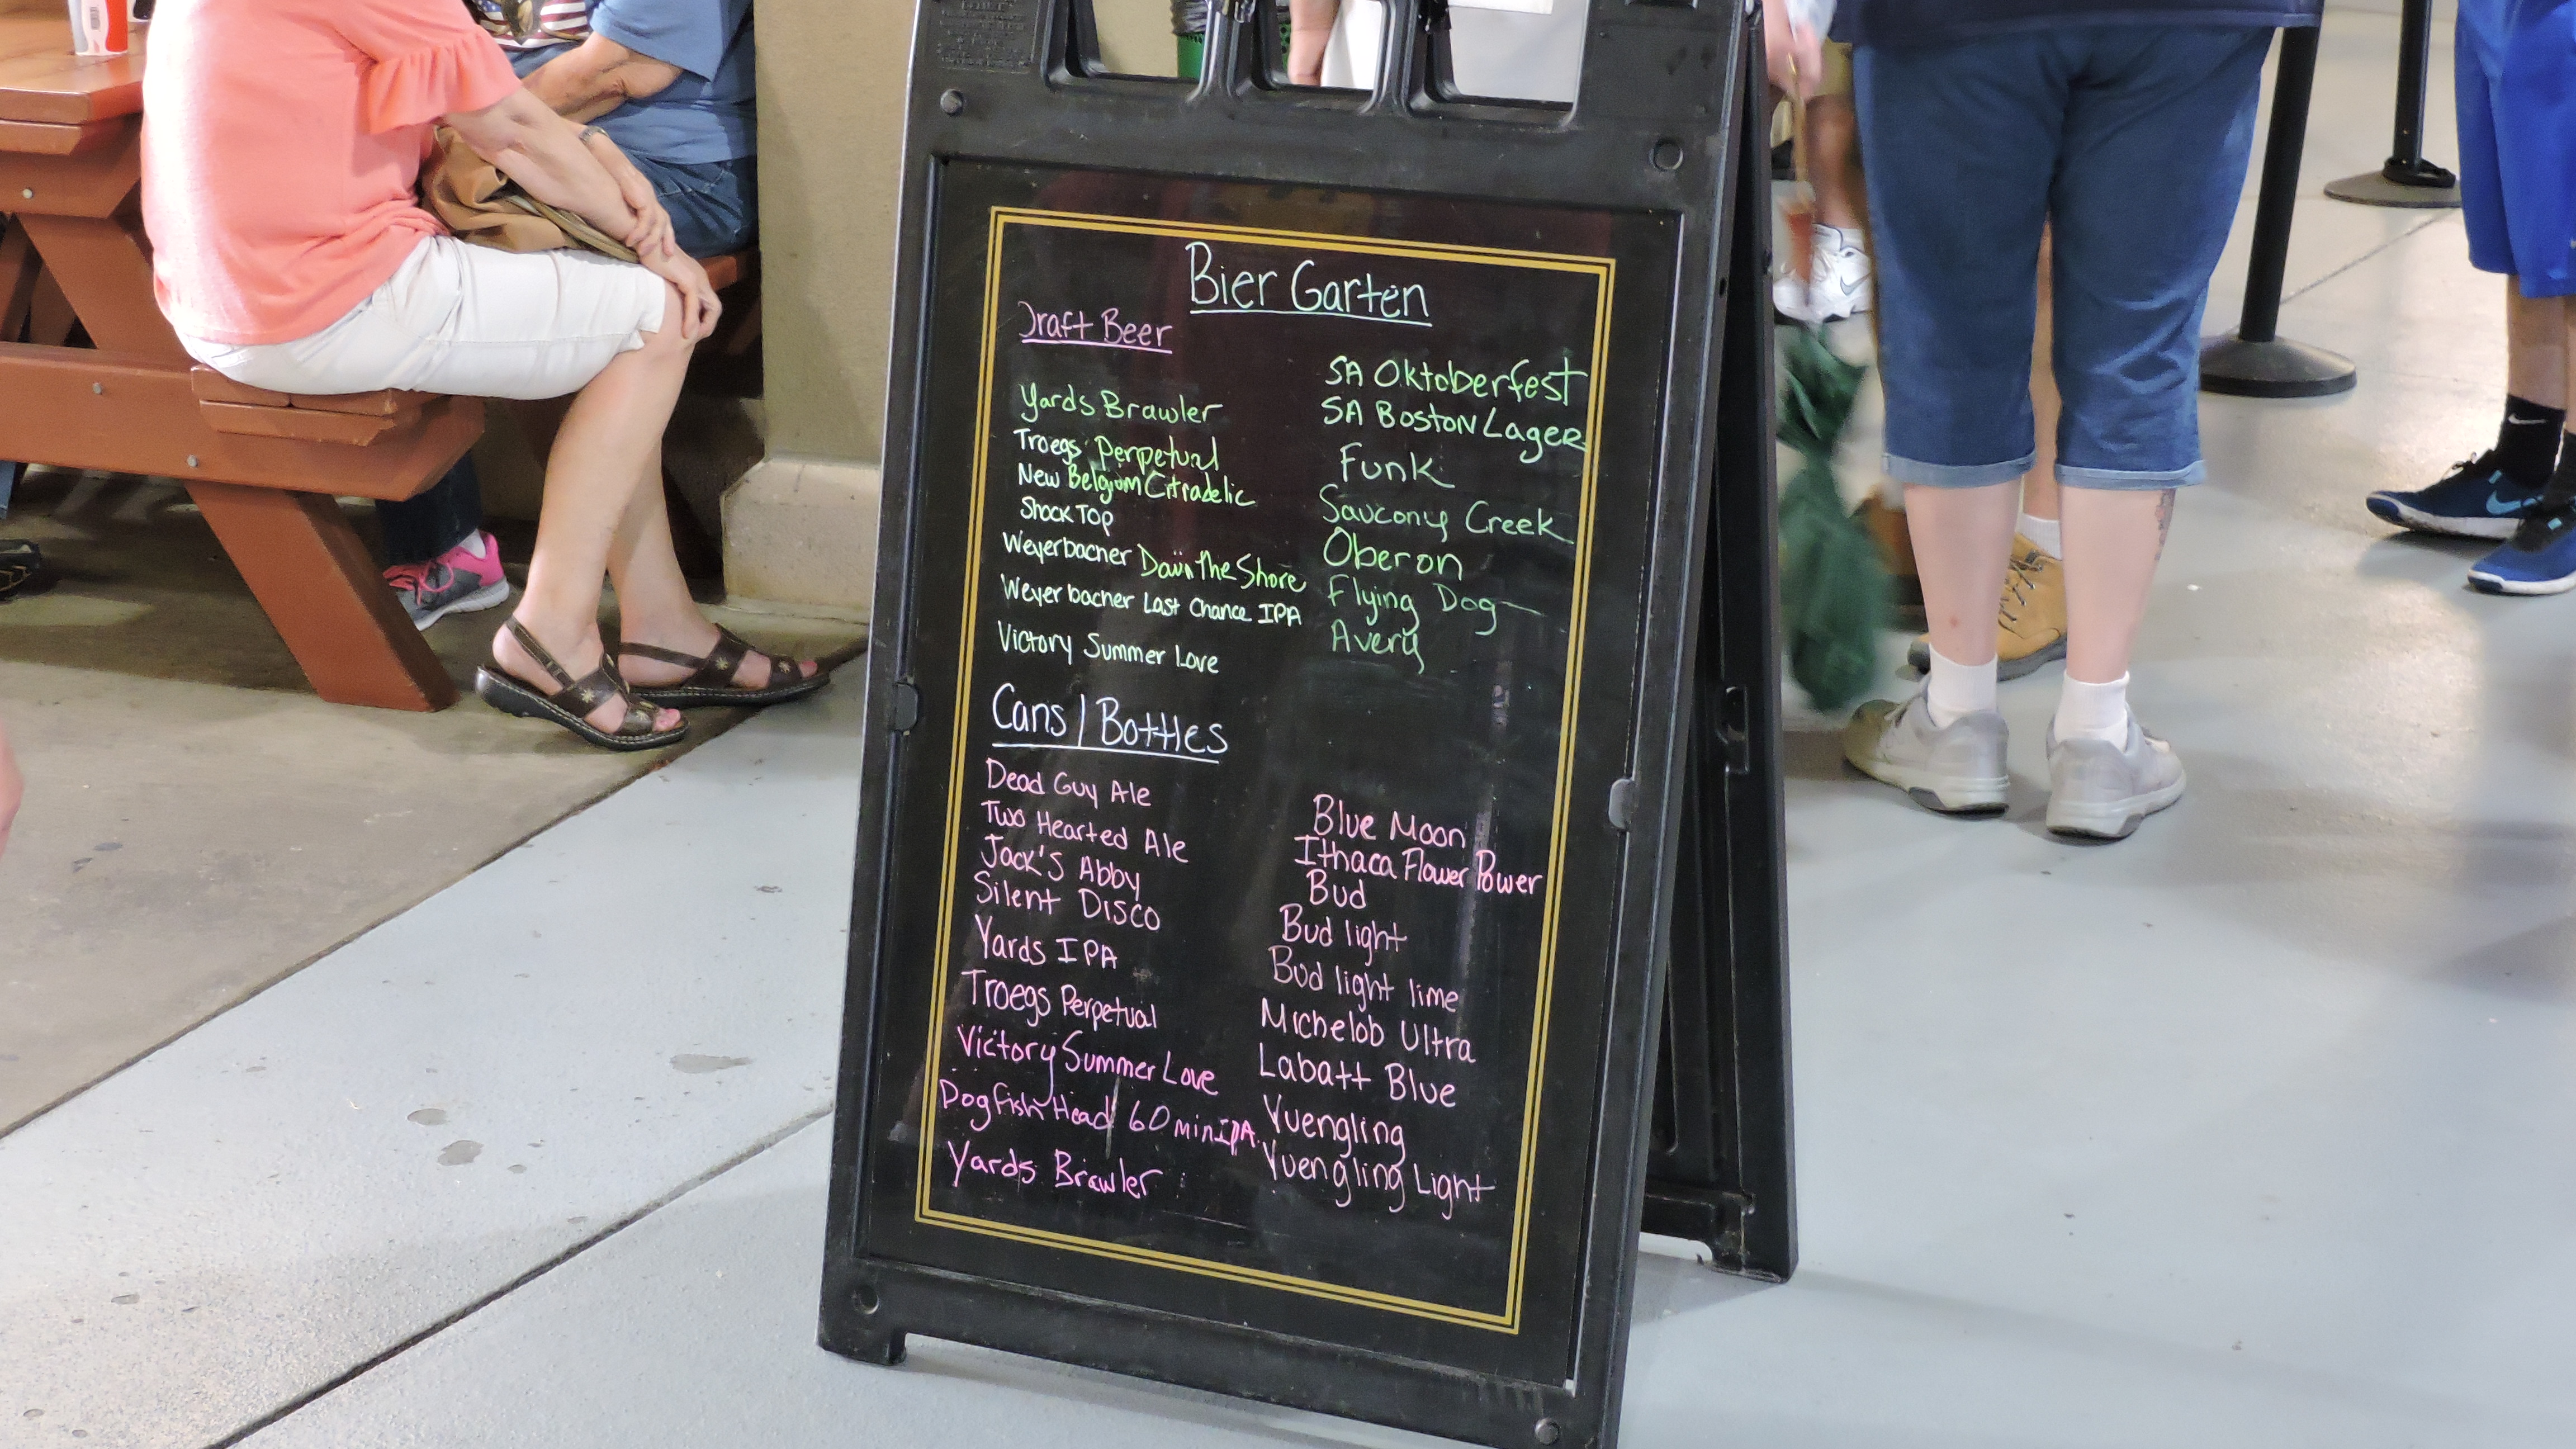 Bier Garten
Draft Beer
Yards Brawler
Troegs Perpetual
New Belgium Citradelic
Shock Top
Weyerbacher Down The Shore
Weyerbacher Last Chance IPA
Victory Summer Love
SA Oktoberfest
SA Boston Lager
Funk
Saucony Creek
Oberon
Flying Dog
Avery
Cans/Bottles
Dead Guy Ale
Two Hearted Ale
Jack's Abby
Silent Disco
Yards IPA
Troegs Perpetual
Victory Summer Love
Dogfish Head 60 min IPA
Yards Brawler
Blue Moon
Ithaca Flower Power
Bud
Bud light
Bud light lime
Michelob Ultra
Labatt Blue
Yuengling
Yuengling Light